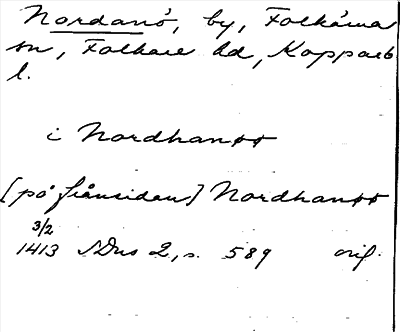 Nordanö, by, Folkärna
sn, Folkare hd, Kopparb
l.
i Nordhanøø
[på frånsidan] Nordhanøø
3/2
1413 SDns 2, s. 589 orig.